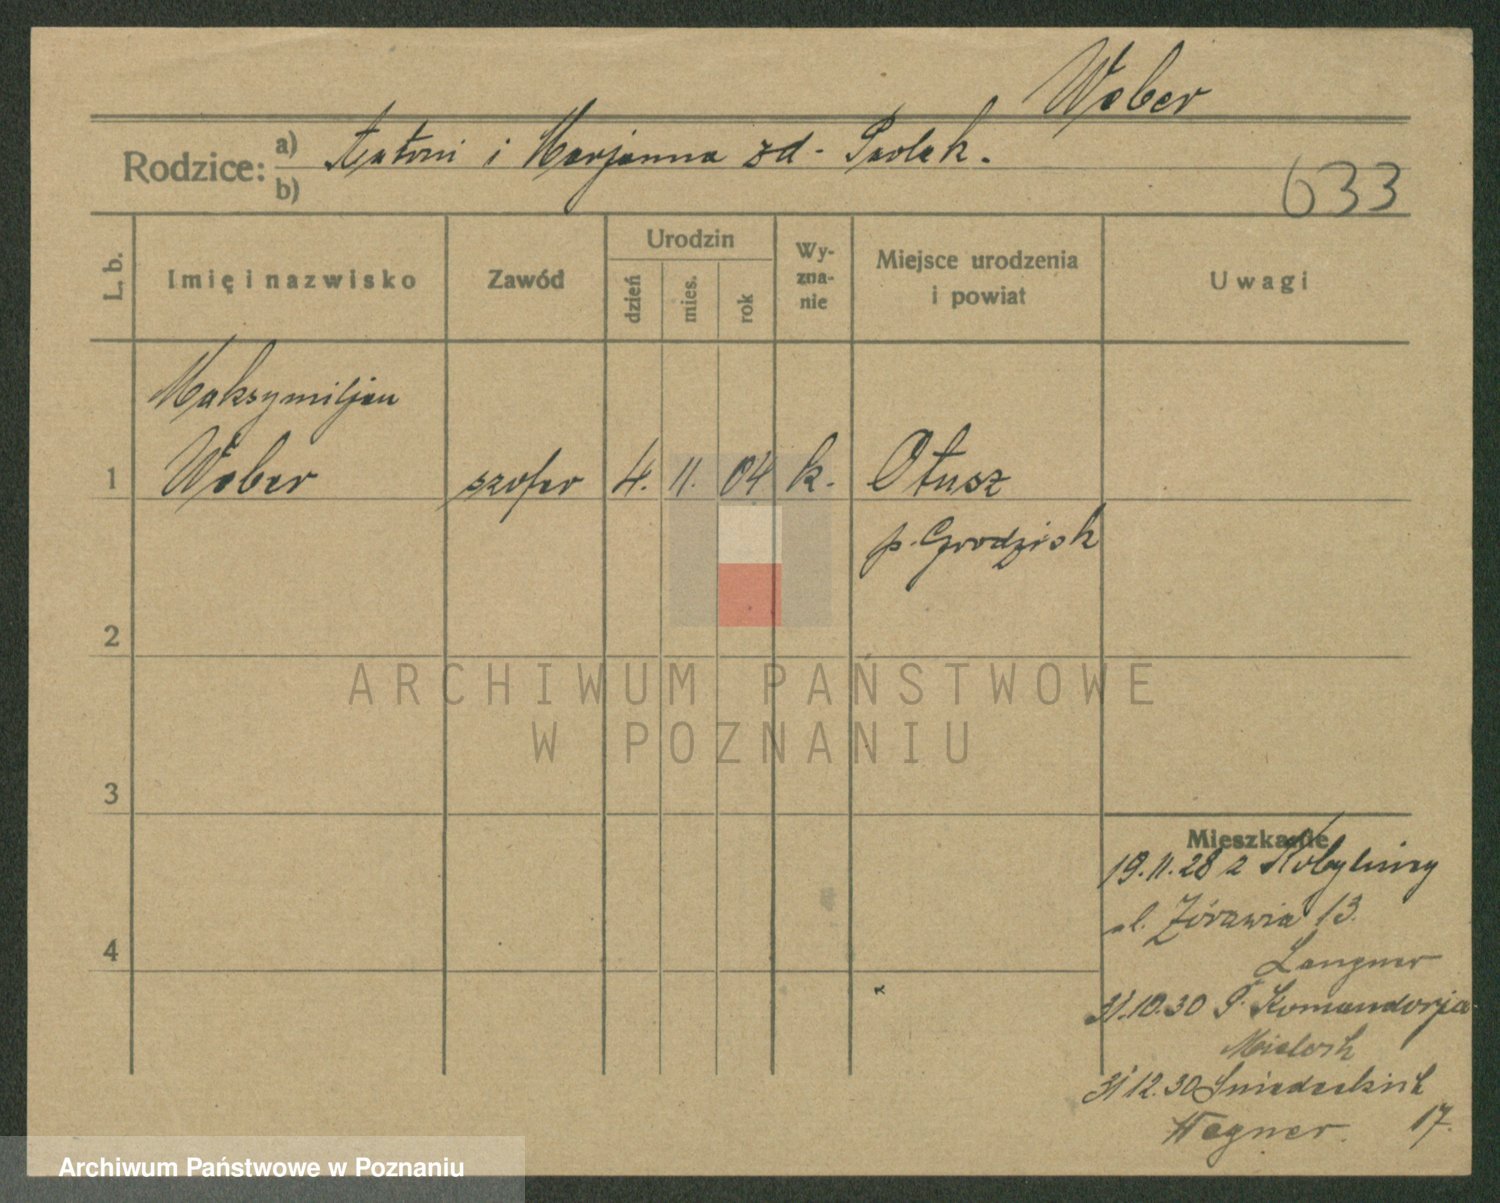 Weber
Rodzice: a) Antoni i Marjanna zd - Pawlak.
b)
633
L. b.
Imię i nazwisko
Zawód
Urodzin
dzień
mies.
rok
Wy-
zna-
nie
Miejsce urodzenia
i powiat
Uwagi
Maksymiljan
1 Weber szofer 4. 11. 04 k. Otusz
p. Grodzisk
2
ARCHIWUM PAŃSTWOWE
W POZNANIU
3
Mieszkanie
19.11.28 z Kobylnicy
ul. Żórawia 13.
Langner
4
31.10.30 P. Komandorja
31 12.30 Śniadeckich
Wagner. 17.
Archiwum Państwowe w Poznaniu